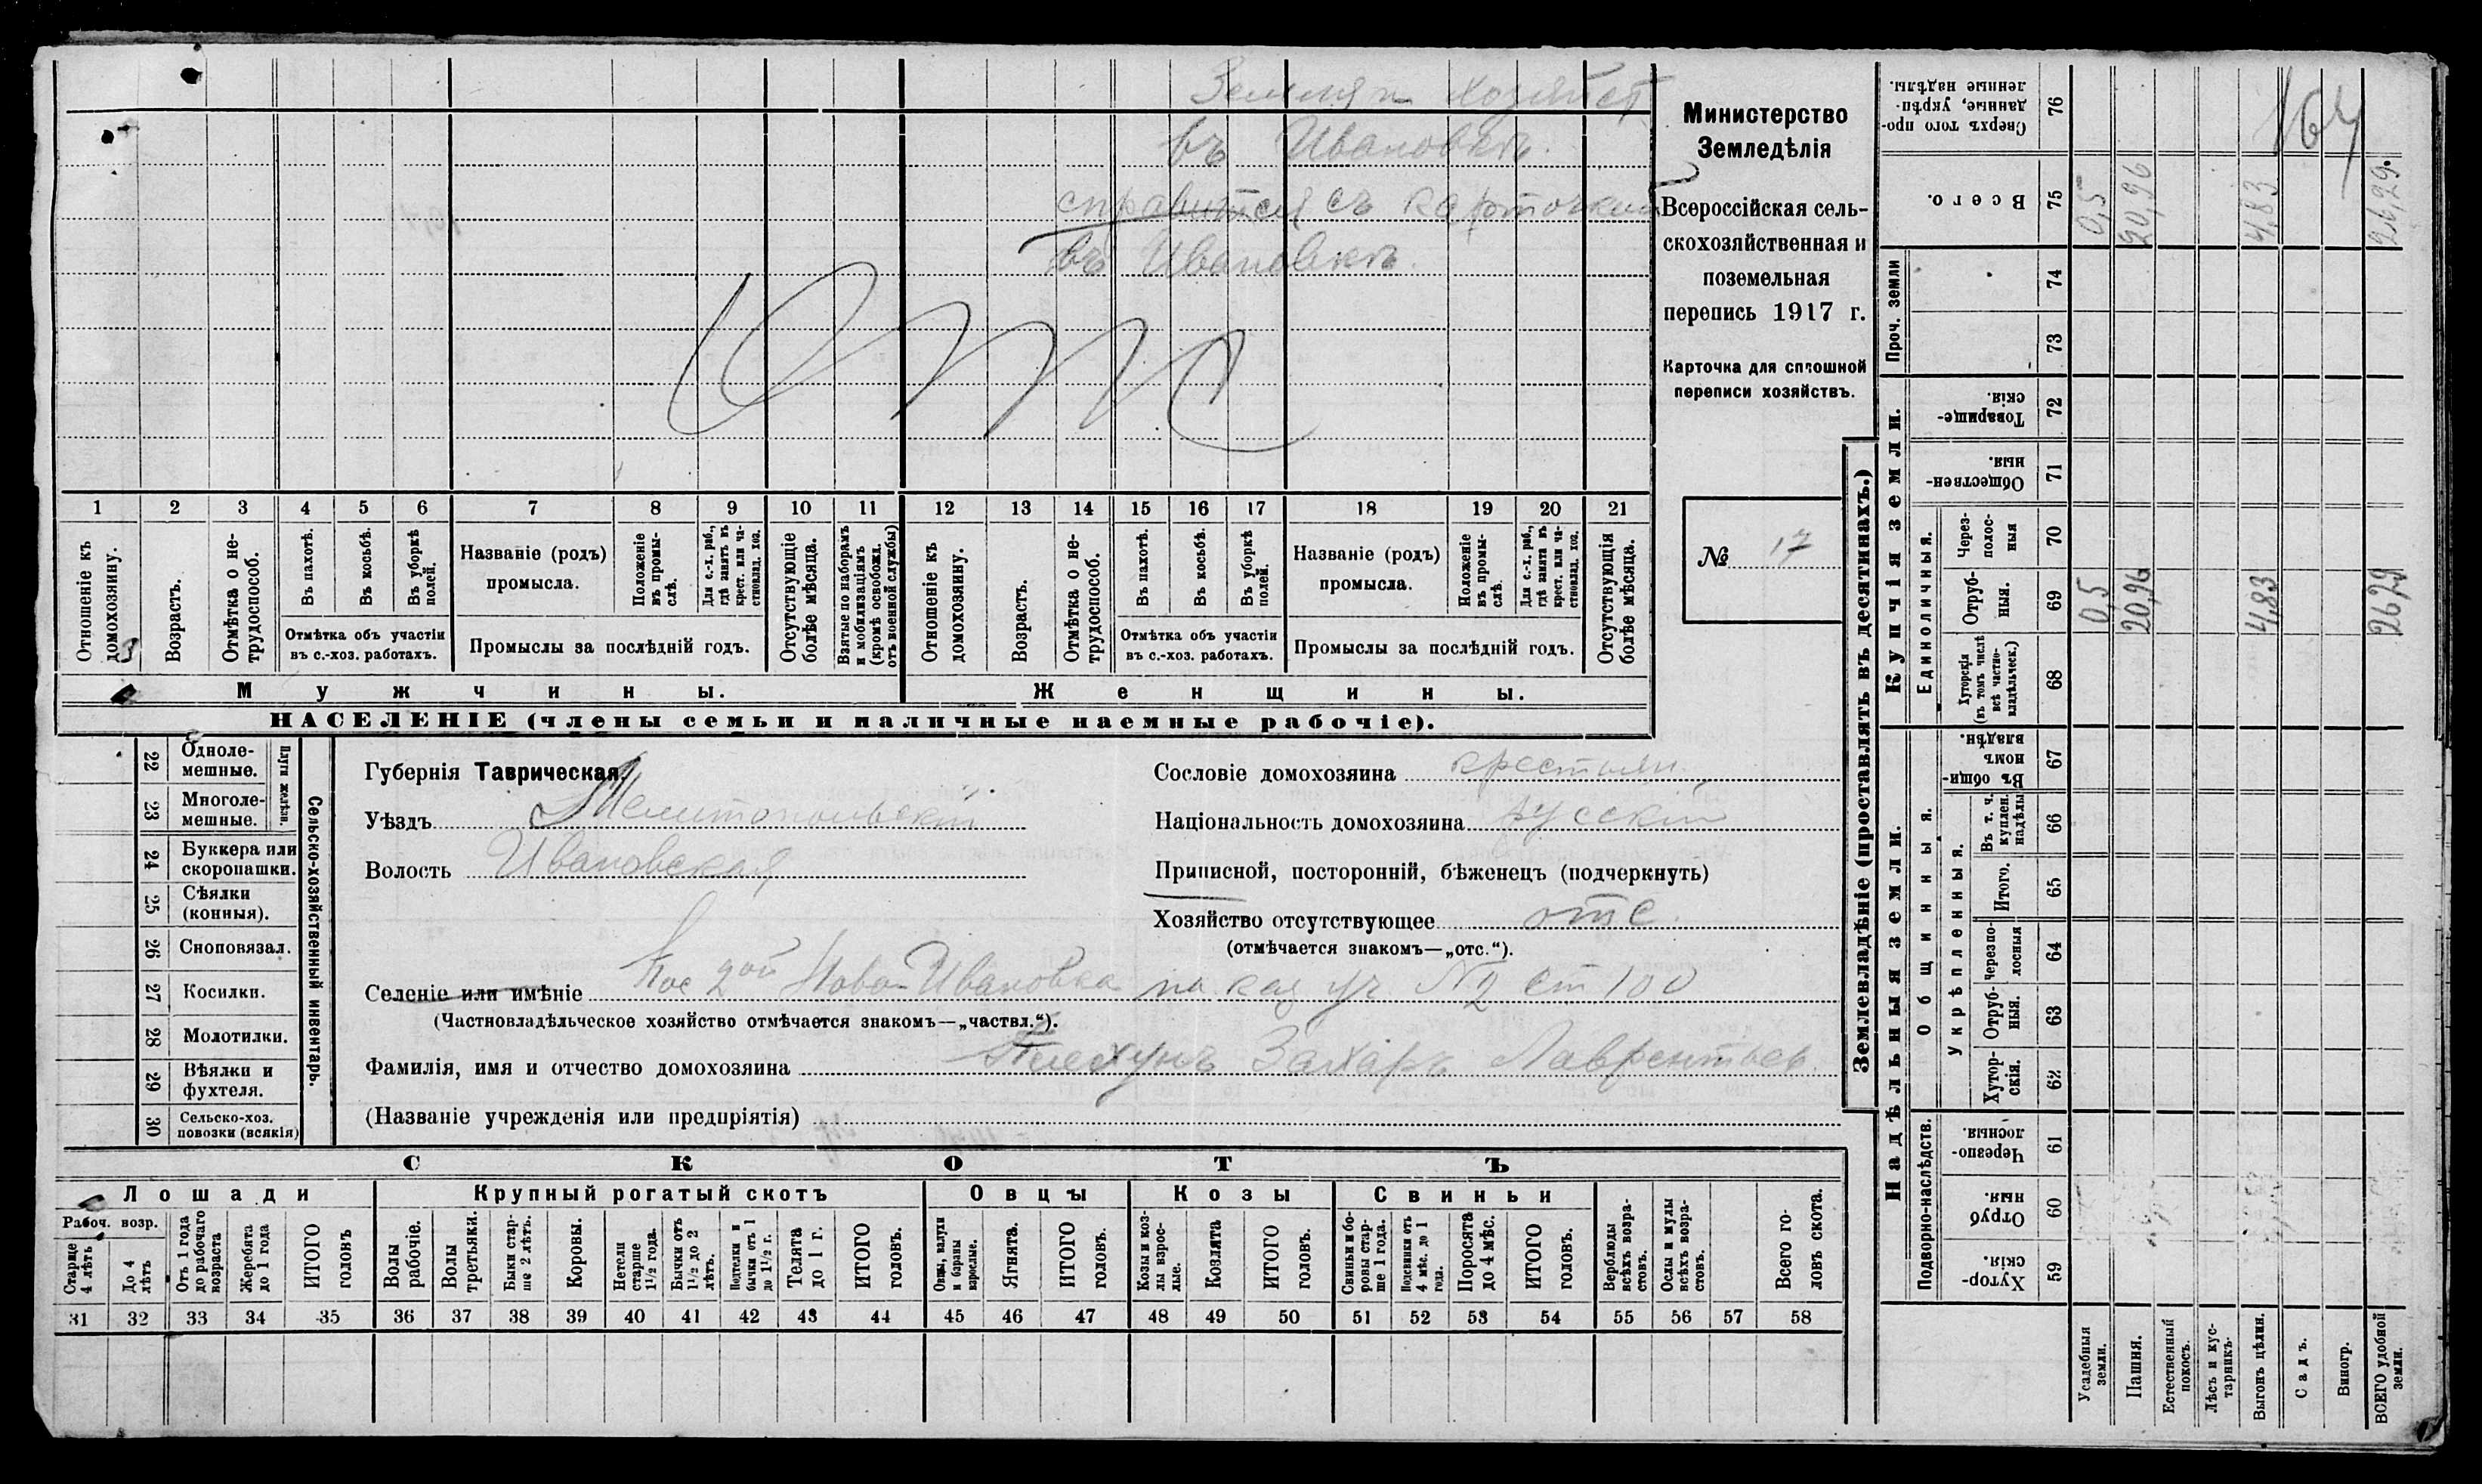 Земля и хозяйст
въ Ивановкѣ.
справится съ карточкой
въ Ивановкѣ.
Отс
1 2 3 4 5 6 7 8 9 10 11 12 13 14 15 16 17 18 19 20 21
Отношеніе къ домохозяину.
Возрастъ.
Отмѣтка о не-
трудоспособ.
Въ пахотѣ.
Въ косьбѣ.
Въ уборкѣ
полей.
Отмѣтка объ участіи
въ с.-хоз. работахъ.
Названіе (родъ)
промысла.
Положеніе
въ промы-
слѣ.
Для с.-х. раб.,
гдѣ занятъ въ
крест. или ча-
стновлад. хоз.
Промыслы за послѣдній годъ.
Отсутствующіе
болѣе мѣсяца.
Взятые по наборамъ
и мобилизаціямъ
(кромѣ освобожд.
отъ военной службы)
Отношеніе къ
домохозяину.
Возрастъ.
Отмѣтка о не-
трудоспособ.
Въ пахотѣ.
Въ косьбѣ.
Въ уборкѣ
полей.
Отмѣтка объ участіи
въ с.-хоз. работахъ.
Названіе (родъ)
промысла.
Положеніе
въ промы-
слѣ.
Для с.-х. раб.,
гдѣ занята въ
крест. или ча-
стновлад. хоз.
Промыслы за послѣдній годъ.
Отсутствующія
болѣе мѣсяца.
Мужчины.
Женщины.
НАСЕЛЕНІЕ (члены семьи и наличные наемные рабочіе).
Министерство
Земледѣлія
Всероссійская сель-
скохозяйственная и
поземельная
перепись 1917 г.
Карточка для сплошной
переписи хозяйствъ.
№ 17
22 Одноле-
мешные.
23 Многоле-
мешные.
Плуги желѣзн.
24 Буккера или
скоропашки.
25 Сѣялки
(конныя).
26 Сноповязал.
27 Косилки.
28 Молотилки.
29 Вѣялки и
фухтеля.
30 Сельско-хоз.
повозки (всякія)
Сельско-хозяйственный инвентарь.
Губернія Таврическая.
Уѣздъ Мелитопольскій
Волость Ивановская
Сословіе домохозяина крестьян.
Національность домохозяина русскій
Приписной, посторонній, бѣженецъ (подчеркнуть)
Хозяйство отсутствующее отс.
(отмѣчается знакомъ—„отс.“).
Селеніе или имѣніе Пос 2ой Ново-Ивановка на каз уч №2 ст 100
(Частновладѣльческое хозяйство отмѣчается знакомъ—„частвл.“).
Фамилія, имя и отчество домохозяина Захаръ Лаврентьев.
(Названіе учрежденія или предпріятія)
СКОТЪ
Лошади
Крупный рогатый скотъ
Овцы
Козы
Свиньи
Рабоч. возр.
Старше
4 лѣтъ
До 4
лѣтъ
Отъ 1 года
до рабочаго
возраста
Жеребята
до 1 года
ИТОГО
головъ
Волы
рабочіе.
Волы
третьяки.
Быки стар-
ше 2 лѣтъ.
Коровы.
Нетели
старше
1½ года.
Бычки отъ
1½ до 2
лѣтъ.
Подтелки и
бычки отъ 1
до 1½ г.
Телята
до 1 г.
ИТОГО
головъ.
Овцы, валухи
и бараны
взрослые.
Ягнята.
ИТОГО
головъ.
Козы и коз-
лы взрос-
лые.
Козлята
ИТОГО
головъ.
Свиньи и бо-
ровы стар-
ше 1 года.
Подсвинки отъ
4 мѣс. до 1
года.
Поросята
до 4 мѣс.
ИТОГО
головъ.
Верблюды
всѣхъ возра-
стовъ.
Ослы и мулы
всѣхъ возра-
стовъ.
Всего го-
ловъ скота.
31 32 33 34 35 36 37 38 39 40 41 42 43 44 45 46 47 48 49 50 51 52 53 54 55 56 57 58
Землевладѣніе (проставлять въ десятинахъ.)
Надѣльныя земли.
Купчія земли.
Проч. земли
Подворно-наслѣдств.
Общинныя.
Укрѣпленныя.
Единоличныя.
Хутор-
скія. 59
Отруб
ныя. 60
Черезпо-
лосныя. 61
Хутор-
скія. 62
Отруб-
ныя. 63
Черезпо-
лосныя 64
Итого. 65
Въ т. ч.
куплен.
надѣлы 66
Въ общин-
номъ
владѣн. 67
Хуторскія
(въ томъ числѣ
всѣ частно-
владѣльческ.) 68
Отруб-
ныя. 69
Через-
полос-
ныя 70
Обществен-
ныя. 71
Товарище-
скія. 72
73
74
Всего. 75
Сверхъ того про-
данные, укрѣп-
ленные надѣлы. 76
Усадебныя
земли. 0,5 0,5
Пашня. 20,96 20,96
Естественный
покосъ.
Лѣсъ и кус-
тарникъ.
Выгонъ цѣлин. 4,83 4,83
Садъ.
Виногр.
ВСЕГО удобной
земли. 26,29 26,29.
164